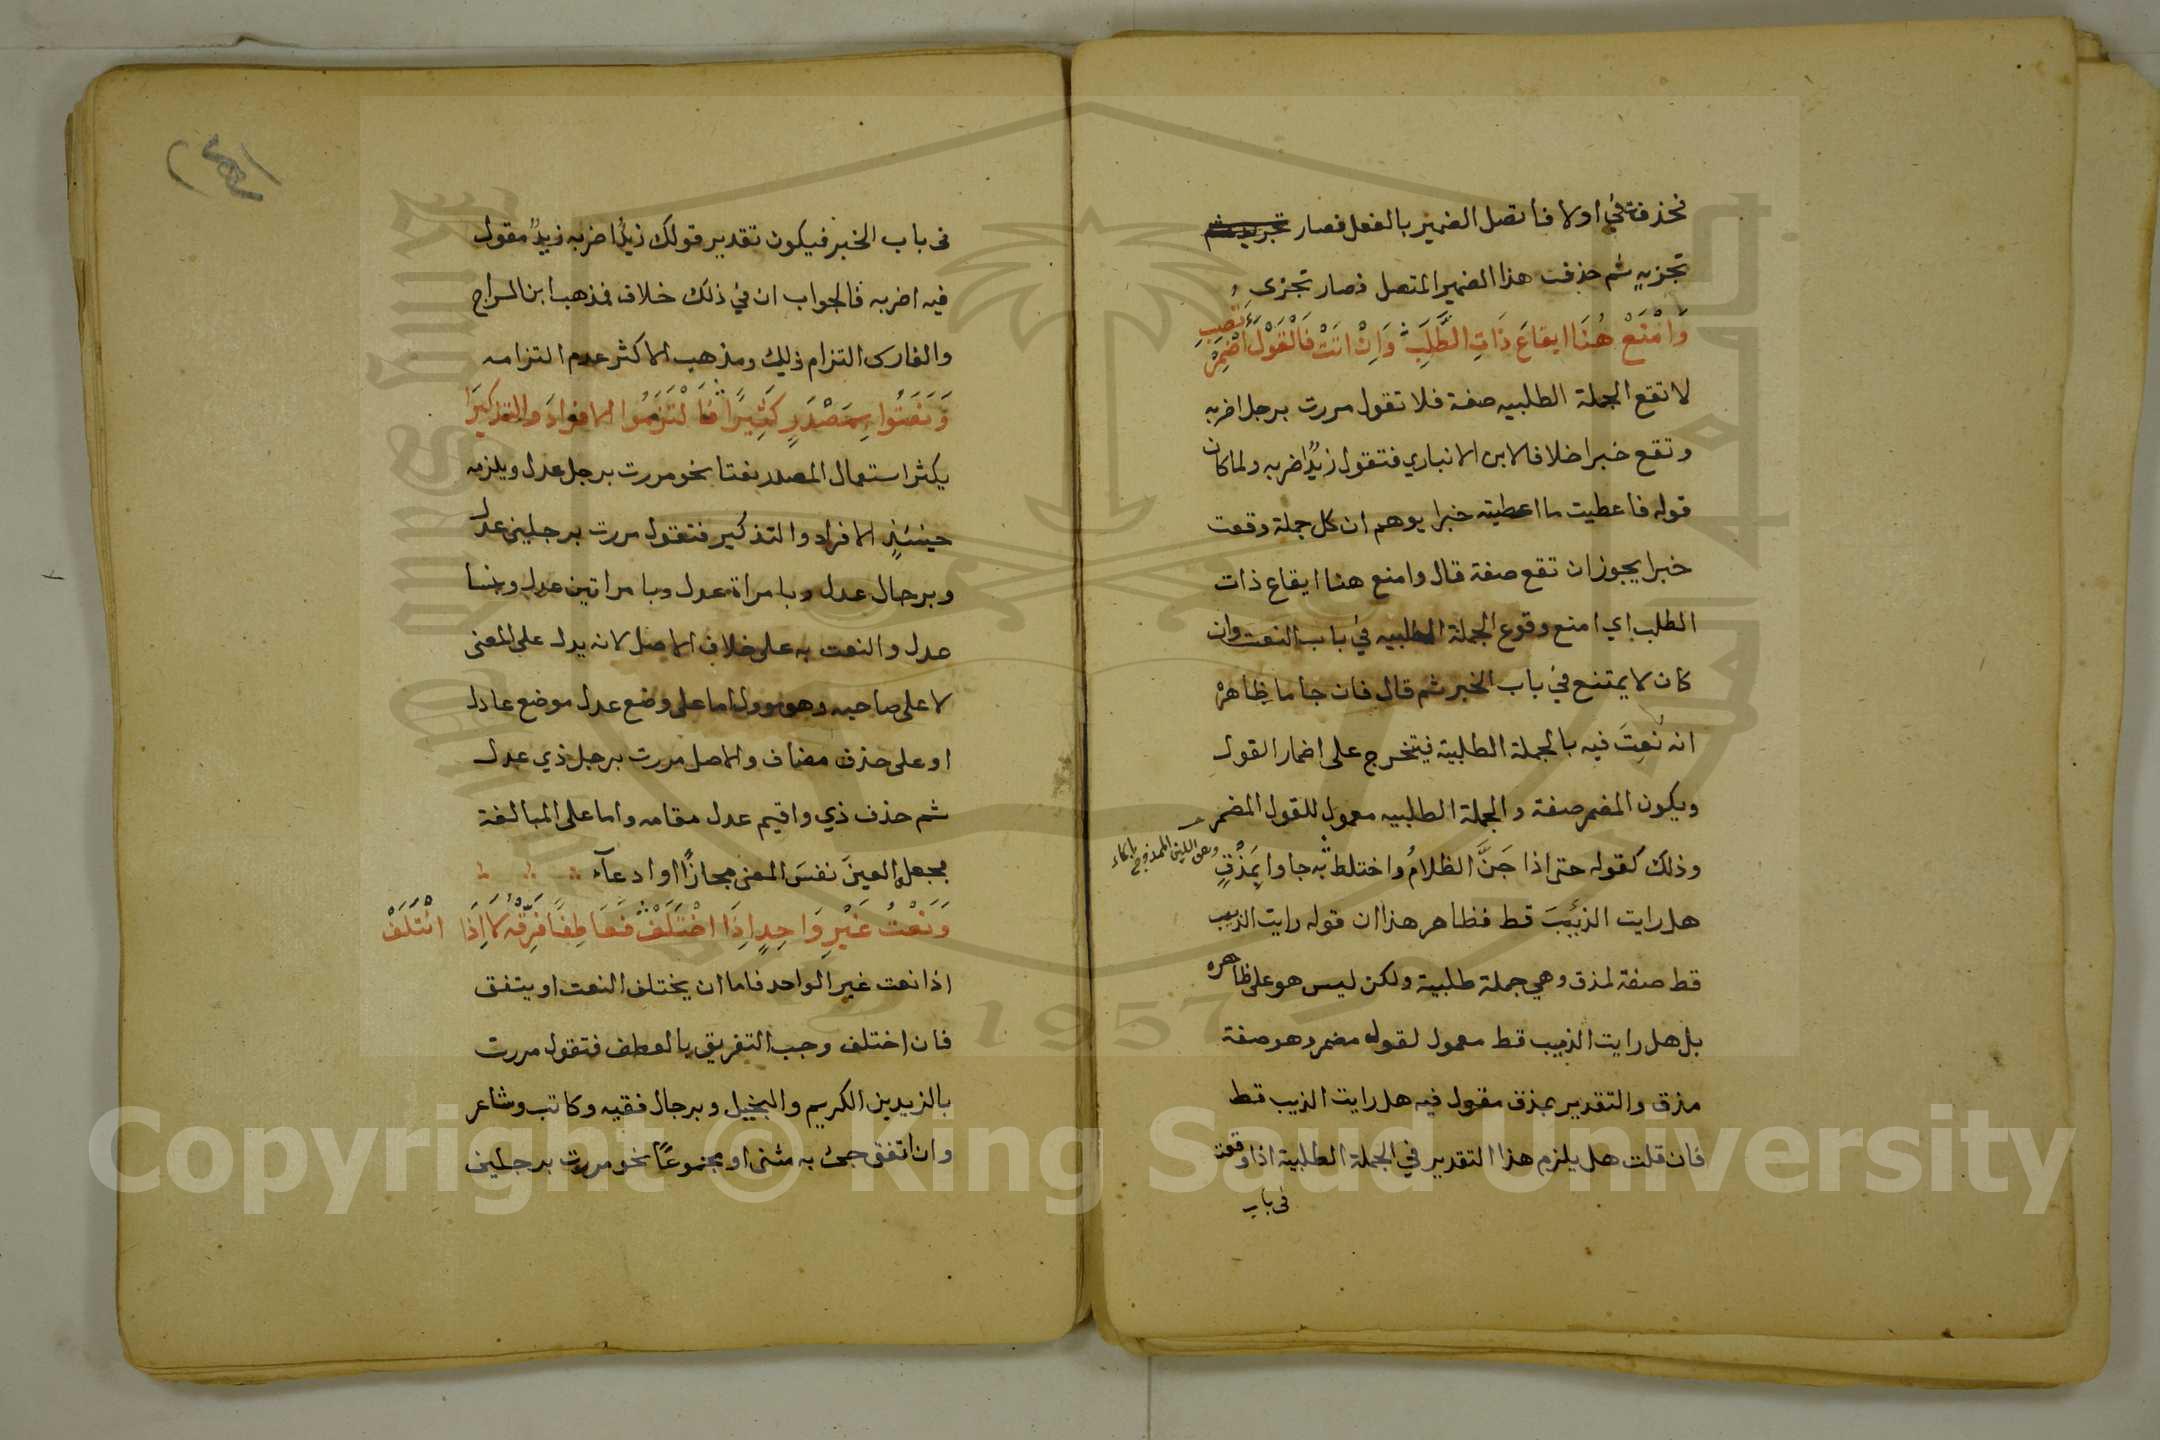 فحذفت في اولا فاتصل الضمير بالفعل فصار
تجزيه ثم حذفت هذا الضمير المتصل فصار تجزى
وَامْنَعْ هُنَا ايقاعَ ذَاتِ الطَّلَبِ وَاِنْ اتَتْ فَالْقَوْلَ أَضْمِرْ تُصِبِ
لا تقع الجملة الطلبيه صفة فلا تقول مررت برجل اضربه
وتقع خبرا خلافا لابن الانباري فتقول زيدٌ اضربه ولما كان
قوله فاعطيت ما اعطيته خبرا يوهم ان كل جملة وقعت
خبرا يجوز ان تقع صفة قال وامنع هنا ايقاع ذات
الطلب اي امنع وقوع الجملة الطلبيه في باب النعت وان
كان لا يمتنع في باب الخبر ثم قال فان جا ما ظاهرُهْ
انه نُعِتَ فيه بالجملة الطلبية فيتخرج على اضمار القول
ويكون المضمر صفة والجملة الطلبيه معمول للقول المضمر
وذلك كقوله حتى اذا جَنَّ الظلامُ واختلط جاوا بِمَذْقٍ
وهو اللبن الممذوج بالماء
هل رايت الذيبَ قط فظاهر هذا ان قوله رايت الذيب
قط صفة لمذق وهي جملة طلبية ولكن ليس هو على ظاهره
بل هل رايت الذيب قط معمول لقول مضمر وهو صفة
مذق والتقدير بمذق مقول فيه هل رايت الذيب قط
فان قلت هل يلزم هذا التقدير في الجملة الطلبية اذا وقعت
فى باب
فى باب الخبر فيكون تقدير قولك زيدٌ اضربه زيدٌ مقول
فيه اضربه فالجواب ان في ذلك خلاف فذهب ابن السراج
والفارسى التزام ذلك ومذهب الاكثر عدم التزامه
وَنَعَتُوا بِمَصْدَرٍ كَثِيرًا فَالْتَزَمُوا الافرادَ والتذكيرَا
يكثر استعمال المصدر نعتا نحو مررت برجل عدل ويلزمه
حينئذٍ الافراد والتذكير فتقول مررت برجلين عدل
وبرجال عدل وبامراة عدل وبامراتين عدل ونسا
عدل والنعت به على خلاف الاصل لانه يدل على المعنى
لا على صاحبه وهو موول اما على وضع عدل موضع عادل
او على حذف مضاف والاصل مررت برجل ذي عدل
ثم حذف ذي واقيم عدل مقامه واما على المبالغة
بجعل العينَ نفسَ المعنى مجازًا او ادعآء
وَنَعْتُ غَيْرِ وَاحِدٍ اِذَا اخْتَلَفْ فَعَاطِفًا فَرِّقْهُ لَا اِذَا ائْتَلَفْ
اذا نعت غير الواحد فاما ان يختلف النعت او يتفق
فان اختلف وجب التفريق بالعطف فتقول مررت
بالزيدين الكريم والبخيل وبرجال فقيه وكاتب وشاعر
وان اتفق جئ به مثنى او مجموعًا نحو مررت برجلين
1957
Copyright © King Saud University